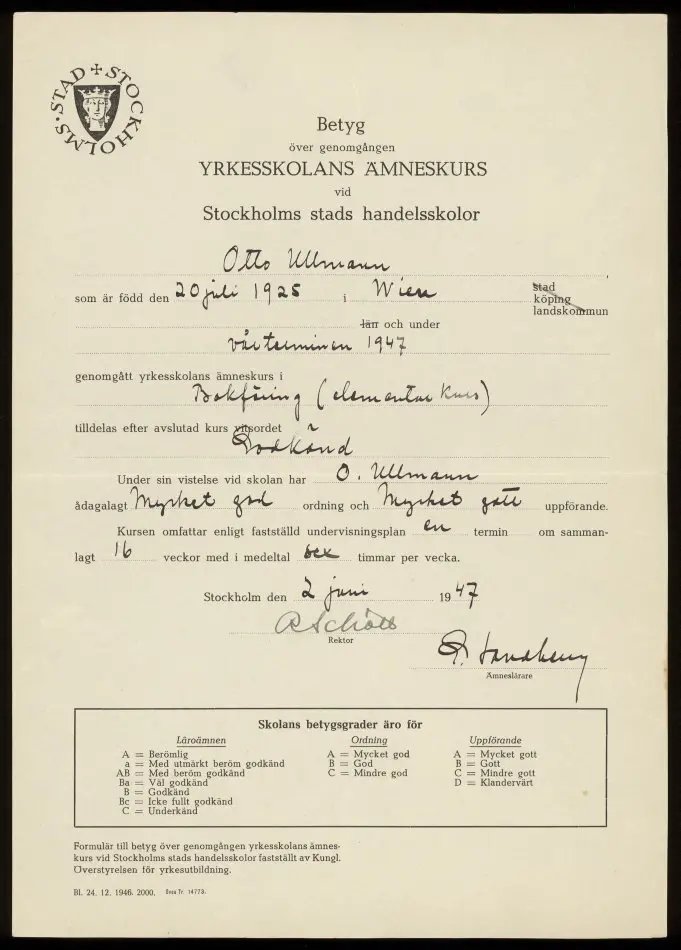 STOCKHOLMS · STAD
Betyg
över genomgången
YRKESSKOLANS ÄMNESKURS
vid
Stockholms stads handelsskolor
Otto Ullmann
som är född den 20 juli 1925 i Wien stad
köping
landskommun
län och under
vårterminen 1947
genomgått yrkesskolans ämneskurs i
Bokföring (elementar kurs)
tilldelas efter avslutad kurs vitsordet
Godkänd
Under sin vistelse vid skolan har O. Ullmann
ådagalagt Mycket god ordning och Mycket gott uppförande.
Kursen omfattar enligt fastställd undervisningsplan en termin om samman-
lagt 16 veckor med i medeltal sex timmar per vecka.
Stockholm den 2 juni 1947
Rektor
Ämneslärare
Skolans betygsgrader äro för
Läroämnen Ordning Uppförande
A = Berömlig A = Mycket god A = Mycket gott
a = Med utmärkt beröm godkänd B = God B = Gott
AB = Med beröm godkänd C = Mindre god C = Mindre gott
Ba = Väl godkänd D = Klandervärt
B = Godkänd
Bc = Icke fullt godkänd
C = Underkänd
Formulär till betyg över genomgången yrkesskolans ämnes-
kurs vid Stockholms stads handelsskolor fastställt av Kungl.
Överstyrelsen för yrkesutbildning.
Bl. 24. 12. 1946. 2000. Tr. 14778.